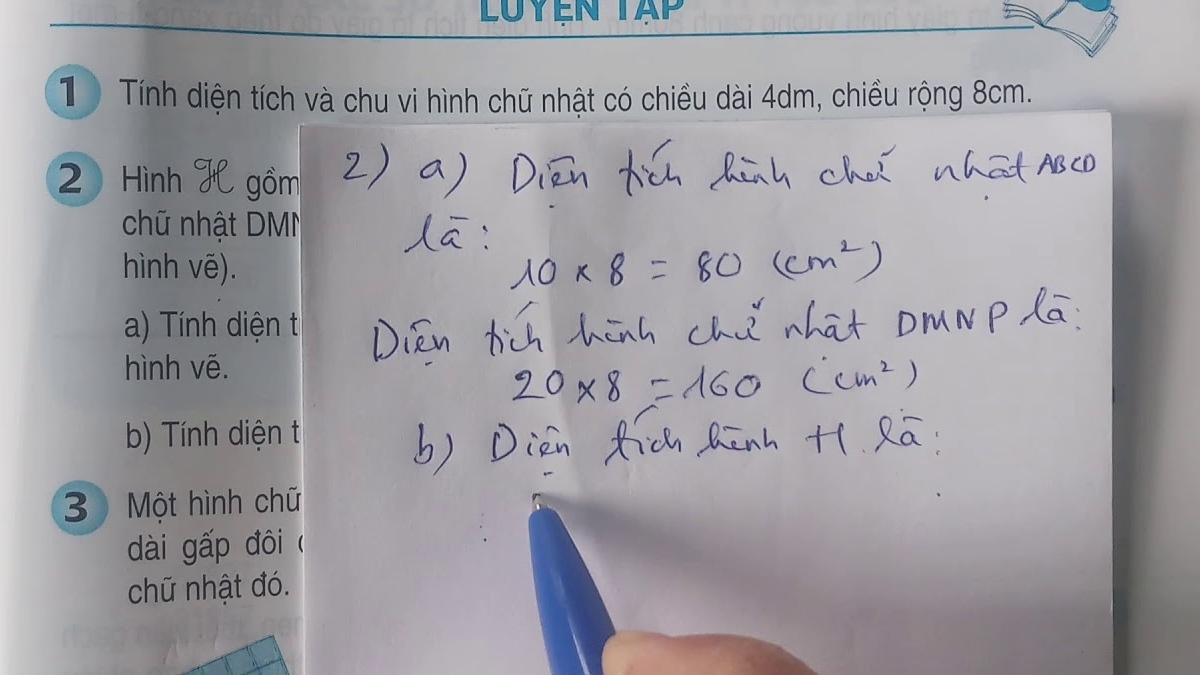 LUYỆN TẬP
1 Tính diện tích và chu vi hình chữ nhật có chiều dài 4dm, chiều rộng 8cm.
2 Hình H gồm
chữ nhật DMN
hình vẽ).
a) Tính diện t
hình vẽ.
b) Tính diện t
3 Một hình chữ
dài gấp đôi c
chữ nhật đó.
2) a) Diện tích hình chữ nhật ABCD
là:
10 x 8 = 80 (cm²)
Diện tích hình chữ nhật DMNP là:
20 x 8 = 160 (cm²)
b) Diện tích hình H là: